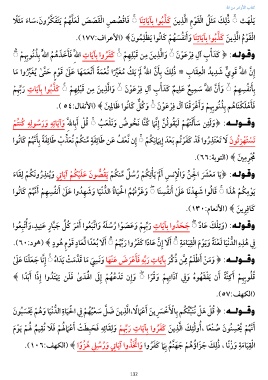 يَلْهَث ۚ ذَّٰلِكَ مَثَلُ الْقَوْمِ الَّذِينَ كَذَّبُوا بِآيَاتِنَا ۚ فَاقْصُصِ الْقَصَصَ لَعَلَّهُمْ يَتَفَكَّرُونَ. سَاءَ مَثَلًا
الْقَوْمُ الَّذِينَ كَذَّبُوا بِآيَاتِنَا وَأَنفُسَهُمْ كَانُوا يَظْلِمُونَ﴾ (الأعراف: ١٧٧).
وقوله: ﴿ كَدَأْبِ آلِ فِرْعَوْنَ ۙ وَالَّذِينَ مِن قَبْلِهِمْ ۚ كَفَرُوا بِآيَاتِ اللَّهِ فَأَخَذَهُمُ اللَّهُ بِذُنُوبِهِمْ ۗ
إِنَّ اللَّهَ قَوِيٌّ شَدِيدُ الْعِقَابِ * ذَٰلِكَ بِأَنَّ اللَّهَ لَمْ يَكُ مُغَيِّرًا نِّعْمَةً أَنْعَمَهَا عَلَىٰ قَوْمٍ حَتَّىٰ يُغَيِّرُوا مَا
بِأَنفُسِهِمْ ۙ وَأَنَّ اللَّهَ سَمِيعٌ عَلِيمٌ كَدَأْبِ آلِ فِرْعَوْنَ ۙ وَالَّذِينَ مِن قَبْلِهِمْ ۚ كَذَّبُوا بِآيَاتِ رَبِّهِمْ
فَأَهْلَكْنَاهُم بِذُنُوبِهِمْ وَأَغْرَقْنَا آلَ فِرْعَوْنَ ۚ وَكُلٌّ كَانُوا ظَالِمِينَ ﴾ (الأنفال: ٥٤).
وقوله: ﴿وَلَئِن سَأَلْتَهُمْ لَيَقُولُنَّ إِنَّمَا كُنَّا نَخُوضُ وَنَلْعَبُ ۚ قُلْ أَبِاللَّهِ وَآيَاتِهِ وَرَسُولِهِ كُنتُمْ
تَسْتَهْزِئُونَ لَا تَعْتَذِرُوا قَدْ كَفَرْتُم بَعْدَ إِيمَانِكُمْ ۚ إِن نَّعْفُ عَن طَائِفَةٍ مِّنكُمْ نُعَذِّبْ طَائِفَةً بِأَنَّهُمْ كَانُوا
مُجْرِمِينَ ﴾ (التوبة: ٦٦).
وقوله: ﴿ يَا مَعْشَرَ الْجِنِّ وَالْإِنسِ أَلَمْ يَأْتِكُمْ رُسُلٌ مِّنكُمْ يَقُصُّونَ عَلَيْكُمْ آيَاتِي وَيُنذِرُونَكُمْ لِقَاءَ
يَوْمِكُمْ هَٰذَا ۚ قَالُوا شَهِدْنَا عَلَىٰ أَنفُسِنَا ۖ وَغَرَّتْهُمُ الْحَيَاةُ الدُّنْيَا وَشَهِدُوا عَلَىٰ أَنفُسِهِمْ أَنَّهُمْ كَانُوا
كَافِرِينَ ﴾ (الأنعام: ١٣٠).
وقوله: ﴿وَتِلْكَ عَادٌ ۖ جَحَدُوا بِآيَاتِ رَبِّهِمْ وَعَصَوْا رُسُلَهُ وَاتَّبَعُوا أَمْرَ كُلِّ جَبَّارٍ عَنِيدٍ. وَأُتْبِعُوا
فِي هَٰذِهِ الدُّنْيَا لَعْنَةً وَيَوْمَ الْقِيَامَةِ ۗ أَلَا إِنَّ عَادًا كَفَرُوا رَبَّهُمْ ۗ أَلَا بُعْدًا لِّعَادٍ قَوْمِ هُودٍ ﴾ (هود: ٦٠).
وقوله: ﴿ وَمَنْ أَظْلَمُ مِمَّن ذُكِّرَ بِآيَاتِ رَبِّهِ فَأَعْرَضَ عَنْهَا وَنَسِيَ مَا قَدَّمَتْ يَدَاهُ ۚ إِنَّا جَعَلْنَا عَلَىٰ
قُلُوبِهِمْ أَكِنَّةً أَن يَفْقَهُوهُ وَفِي آذَانِهِمْ وَقْرًا ۖ وَإِن تَدْعُهُمْ إِلَى الْهُدَىٰ فَلَن يَهْتَدُوا إِذًا أَبَدًا ﴾
(الكهف: ٥٧).
وقوله: ﴿ قُلْ هَلْ نُنَبِّئُكُم بِالْأَخْسَرِينَ أَعْمَالًا. الَّذِينَ ضَلَّ سَعْيُهُمْ فِي الْحَيَاةِ الدُّنْيَا وَهُمْ يَحْسَبُونَ
أَنَّهُمْ يُحْسِنُونَ صُنْعًا. أُولَٰئِكَ الَّذِينَ كَفَرُوا بِآيَاتِ رَبِّهِمْ وَلِقَائِهِ فَحَبِطَتْ أَعْمَالُهُمْ فَلَا نُقِيمُ لَهُمْ يَوْمَ
الْقِيَامَةِ وَزْنًا. ذَٰلِكَ جَزَاؤُهُمْ جَهَنَّمُ بِمَا كَفَرُوا وَاتَّخَذُوا آيَاتِي وَرُسُلِي هُزُوًا ﴾ (الكهف: ١٠٦).
133